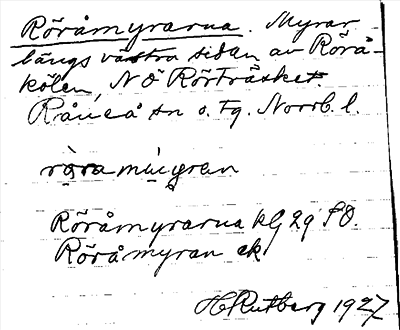 Röråmyrarna. Myrar
längs västra sidan av Rörå-
kölen, NÖ Rörträsket.
Råneå sn o. tg. Norrb. l.
röra
Röråmyrarna kg 29 SO.
Röråmyran ek
H Rutberg 1927